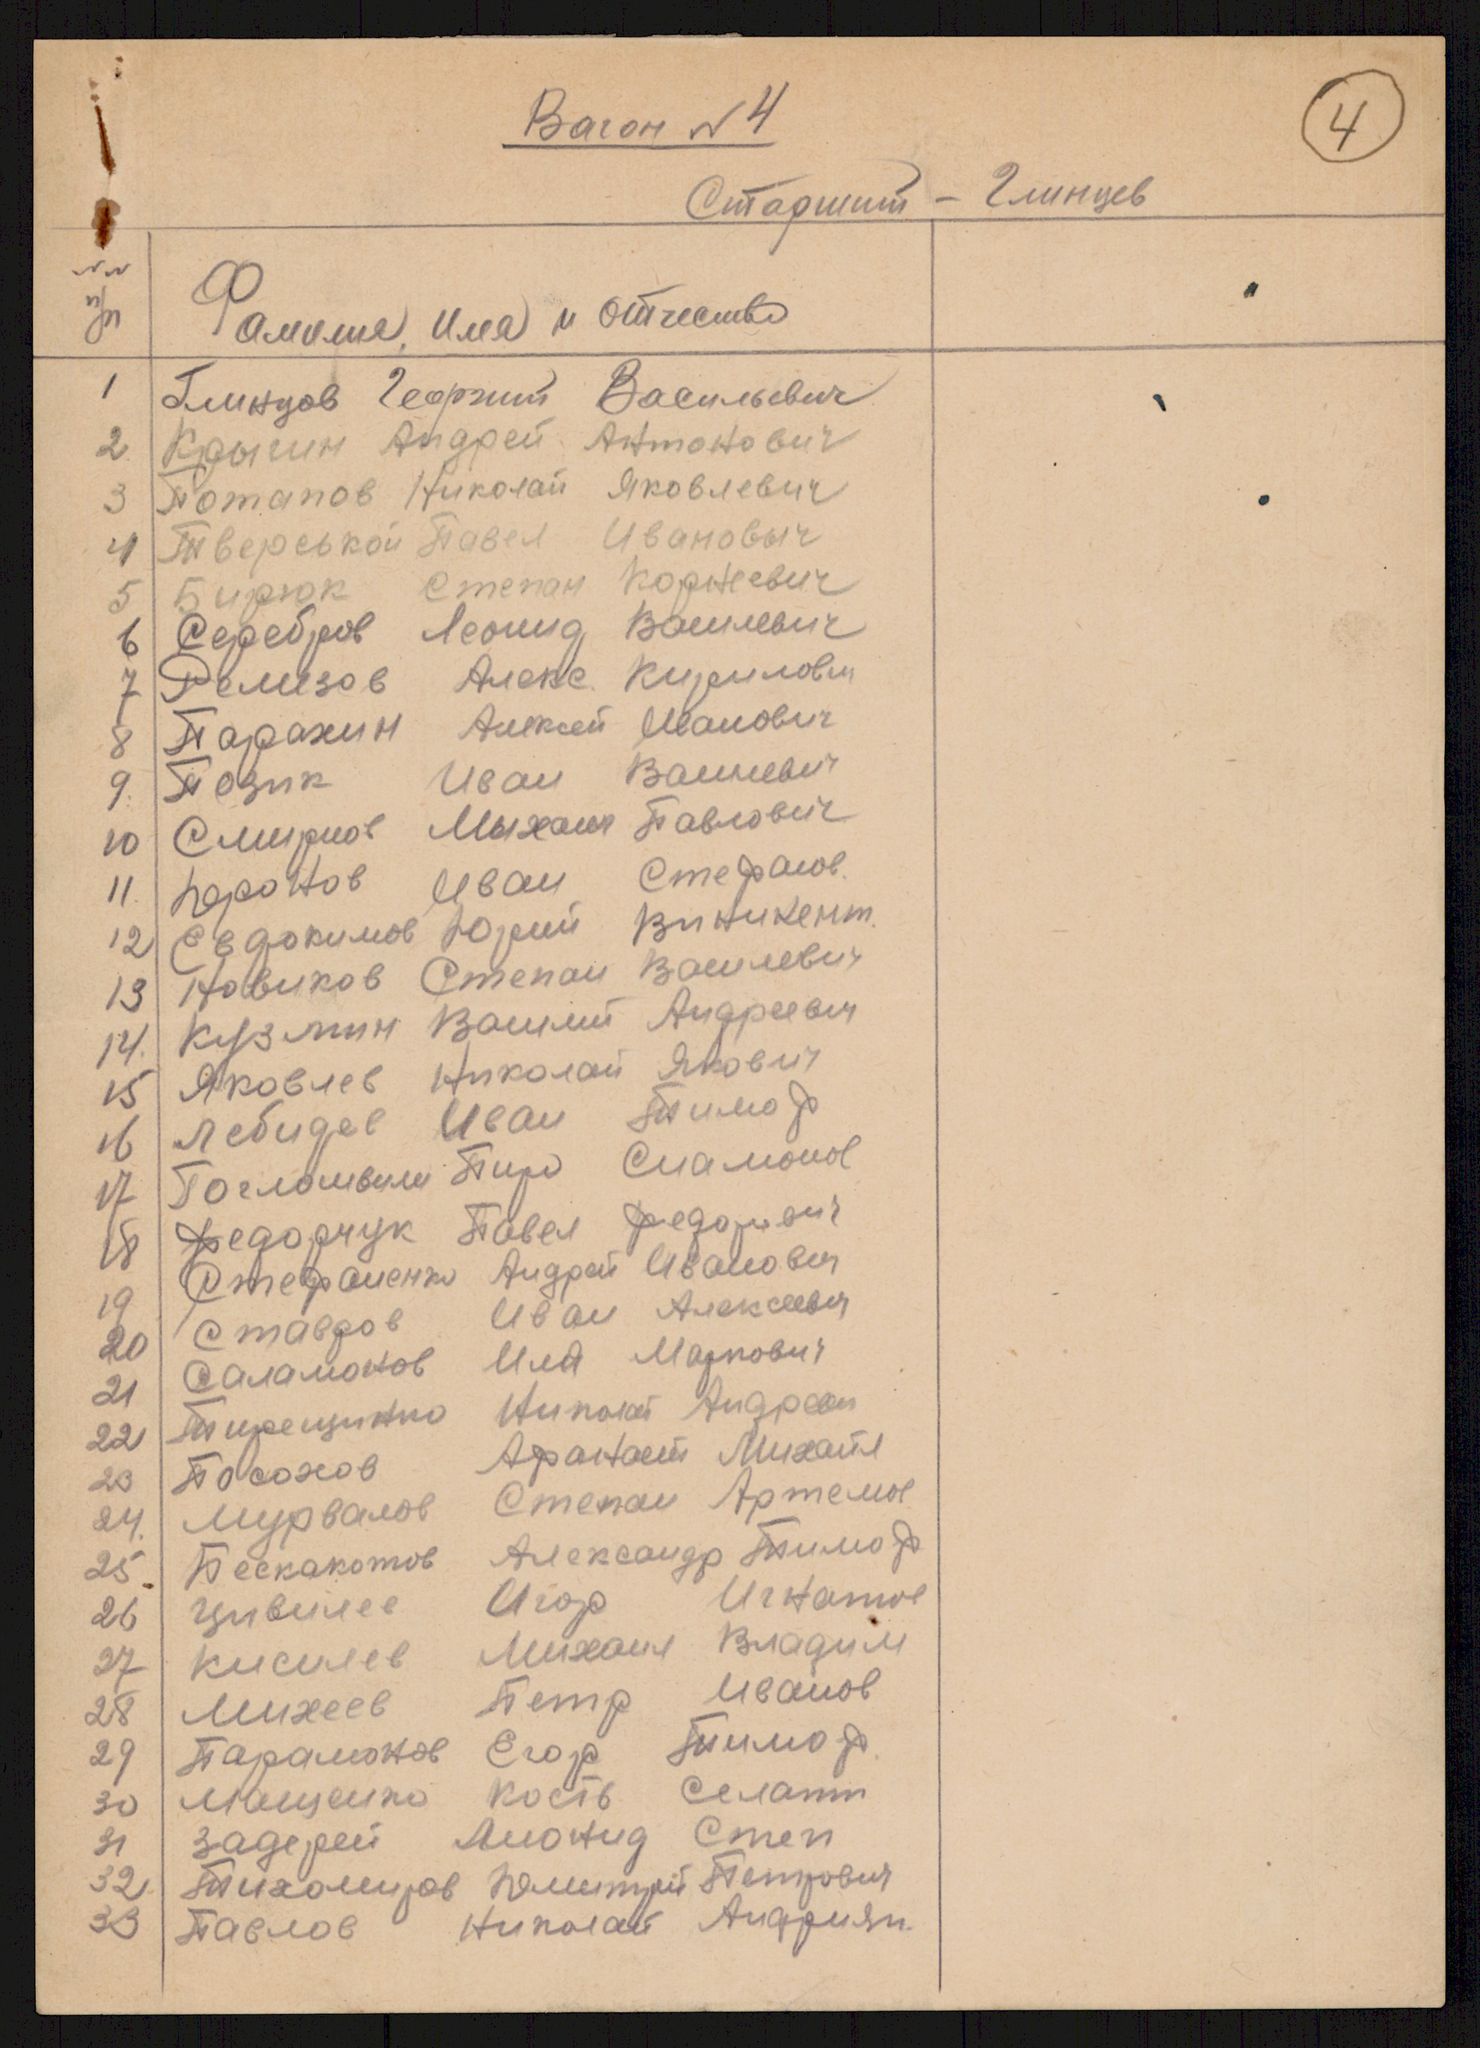 4
Вагон № 4
Старший – Глинцев
№№ п/п Фамилия, имя и отчество
1 Глинцов Георгий Васильевич
2 Крыгин Андрей Антонович
3 Потапов Николай Яковлевич
4 Тверськой Павел Ивановыч
5 Бирюк Степан Корнеевич
6 Серебров Леонид Василевич
7 Ремизов Алекс. Кирилович
8 Парахин Алексей Иванович
9. Позик Иван Василевич
10 Смирнов Мыхаил Павлович
11. Дронов Иван Стефанов.
12 Евдокимов Юрий Викикент.
13 Новиков Степан Василевич
14. Кузмин Василий Андреевич
15 Яковлев Николай Якович
16 Лебидев Иван Тимоф
17 Пиро Сиамонов
18 Федорчук Павел Федорович
19 Стефаненко Андрей Иванович
20 Ставров Иван Алексеевич
21 Саламонов Иля Маркович
22 Тирещинко Николай Андреев
23 Посохов Афанасий Михайл
24. Мурвалов Степан Артемов
25. Пескакотов Александр Тимоф
26 Цивилев Игор Игнатов
27 Кисилев Михаил Владим
28 Михеев Петр Иванов
29 Парамонов Егор Тимоф.
30 Мащенко Кость Селант
31 Задерей Лионид Степ
32 Тихомиров Дмитрий Петрович
33 Павлов Николай Андриян.